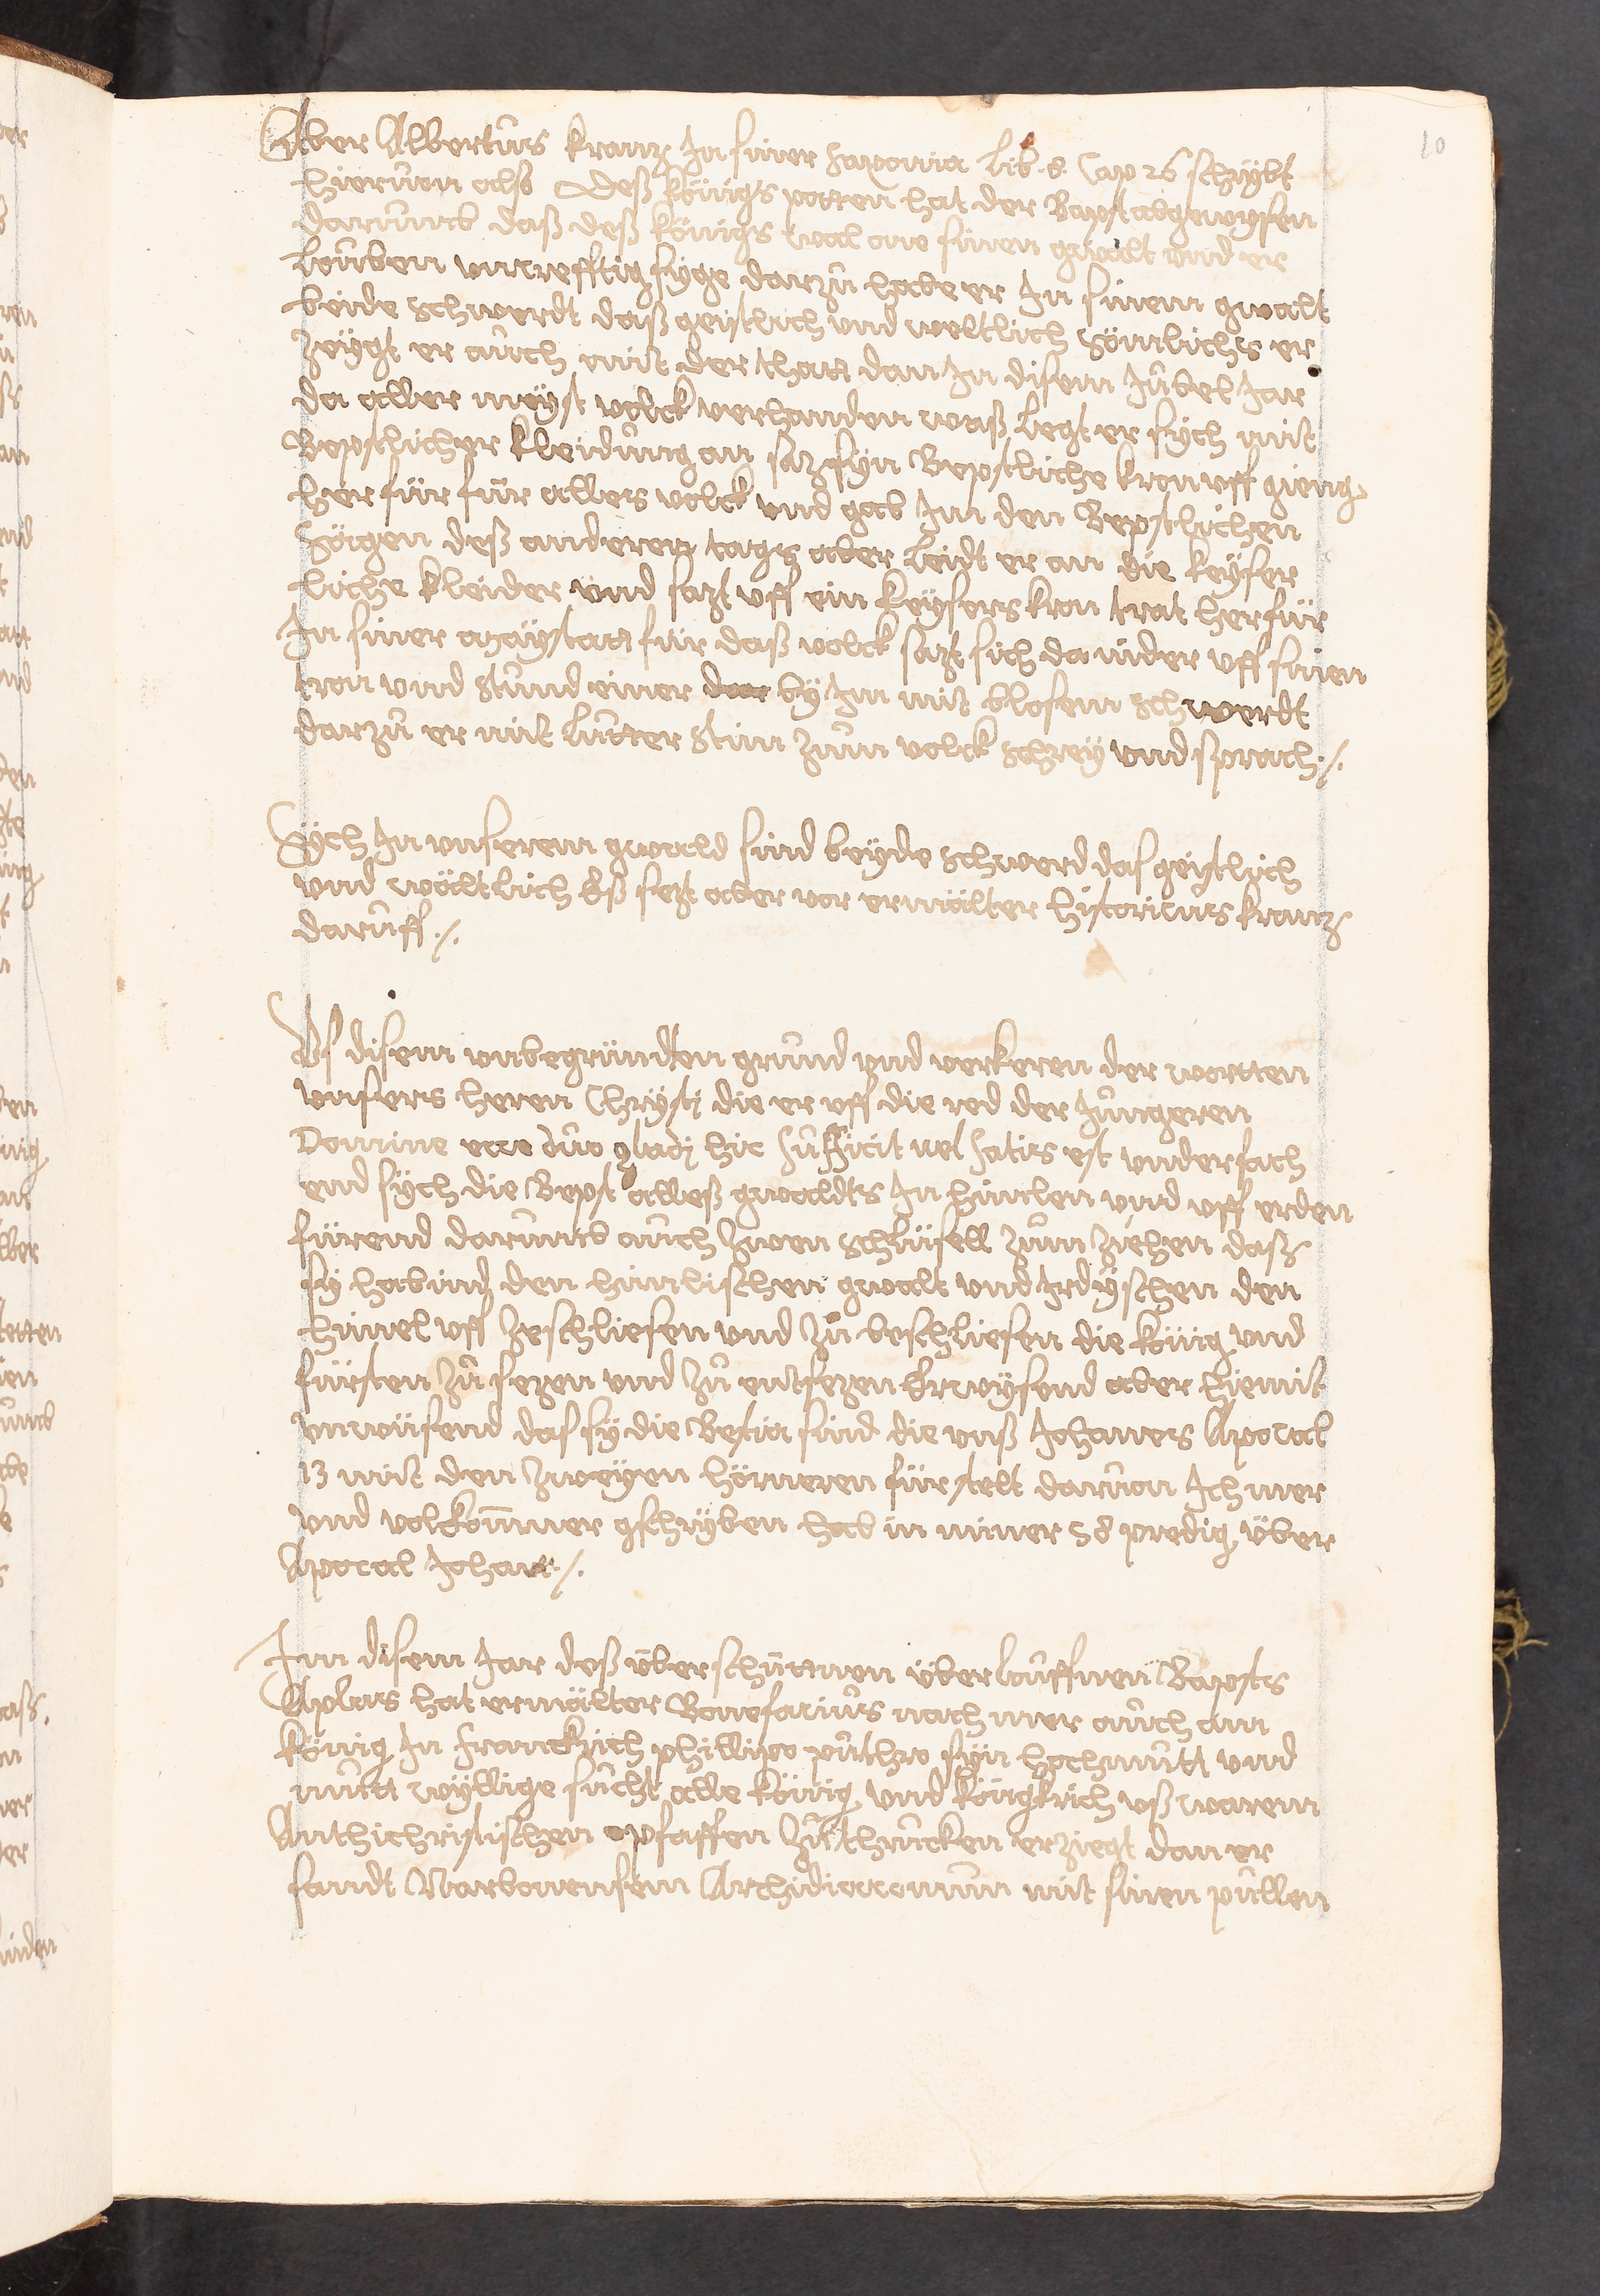 10
Aber Albertus kranz In siner saxonia Lib. 8. Cap 26 schrybt
hieruon also Deß königs potten hat der Bapst abgewysen
darumb daß deß königs wal ane sinen gwalt vnd er
Louben vncrefftig syge darzů habe er In sinem gwalt
beide schwerdt daß geistlich vnd weltlich sömlichs er
zeÿgt er auch mit der thatt dan In disem Jubel Jar
da aller meÿst volck verhanden waß Legt er sych mit
Bepstlicher kleidung an sazt syn Bepstliche kron vff gieng
herfür für alles volck vnd gab Im den Bepstlichen
Sägen deß anderen tags aber Leidt er an die keÿser
liche kleider vnd sazt vff ein keÿsers kron trat herfür
In siner maÿstatt für daß volck sazt sich da nider vff sinen
tron vnd stund einer by Im mit blosem schwerdt
darzů er mit Lutter stim zum volck schrey vnd sprach ./.
Sÿch In vnserem gwald sind beÿde schwerd das geistlich
vnd wältlich Eß sezt aber vor ermälter historicus kranz
daruff ./.
Vs disem vnbegründten grund vnd verkeren der wortten
vnsers heren Chrÿstj die er vff die red der Jungeren
Domine ecce duo gladj hic sufficit vel satis est vndersach
end sÿch die Bepst alleß gwaldts In himlen vnd vff erden
fürend darumb auch zwen schlüsell zum ziehen daß
sy habind den himlischen gwalt vnd Irdÿschen den
himel vff zeschliesen vnd zů beschliesen die künig vnd
fürsten zů sezen vnd zů entsezen Erwÿsend aber hiemit
vnwüsend das sÿ die Bestia sind die vnß Johanes Apocal
13 mit den zweÿen hörneren fürstelt daruon Ich mer
vnd volkomner gschryben hab in miner 58 predig über
Apocal Johan ./.
Inn disem Jar deß überschüttnen überlouffnen Bapsts
Aplas hat ermälter Bonefacius nach mer auch am
König In Franckrich philippo pulchro sÿn hochmutt vnd
mutt wyllige sucht alle künig vnd küngkrich vß warem
Anthichristischen pfaffen zů thrucken erziegt dan er
sandt Narbonensem Archidiaconum mit sinen pullen